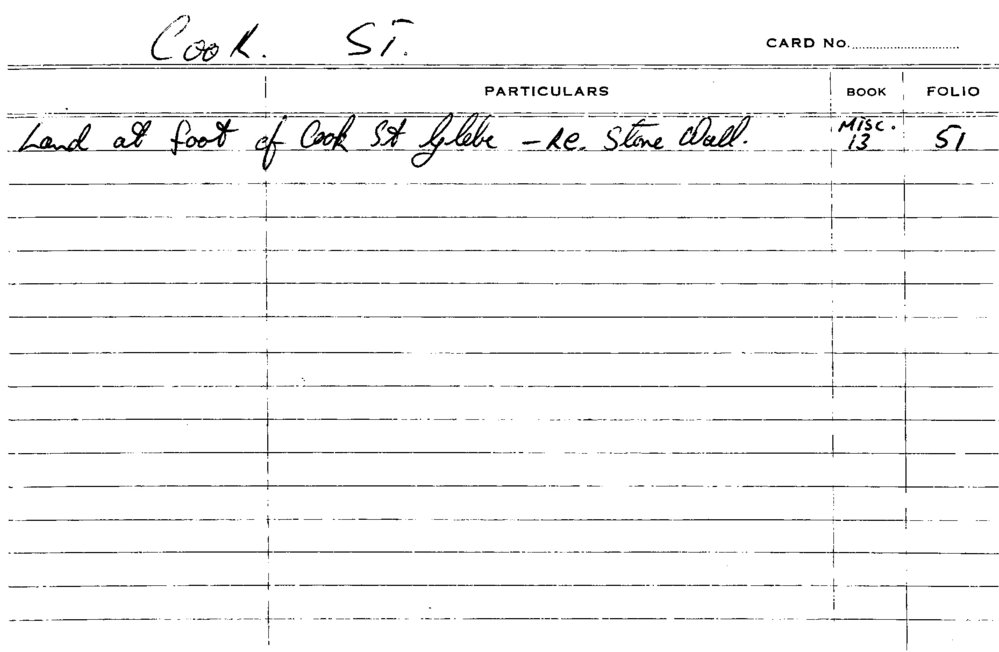 Cook. ST.
CARD No.
PARTICULARS BOOK FOLIO
Land at foot of Cook St Glebe - Re. Stone Wall. Misc. 13 51